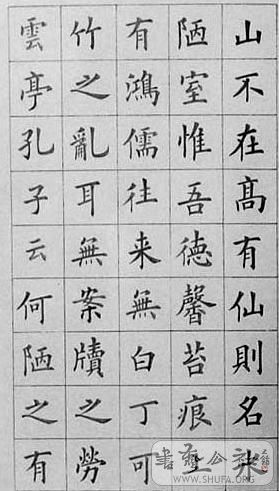 山不在髙有仙則名水
陋室惟吾德馨苔痕上
有鴻儒往来無白丁可
竹之亂耳無案牘之勞
雲亭孔子云何陋之有
WWW.SHUFA.ORG